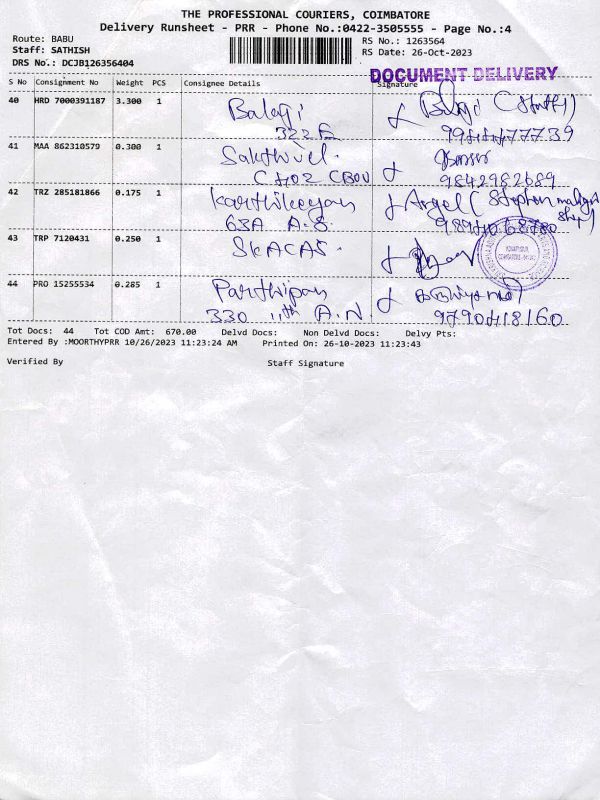 THE PROFESSIONAL COURIERS, COIMBATORE
Delivery Runsheet - PRR - Phone No.:0422-3505555 - Page No.:4
Route: BABU
RS No.: 1263564
Staff: SATHISH
RS Date: 26-Oct-2023
DRS No.: DCJB126356404
DOCUMENT DELIVERY
S No Consignment No Weight PCS Consignee Details Signature
40 HRD 7000391187 3.300 1 Balaji
322 E
41 MAA 862310579 0.300 1 Sakthivel.
9842982689
42 TRZ 285181866 0.175 1 Karthikeyan Angel (Stephen
63A A.S.
43 TRP 7120431 0.250 1 SKACAS.
44 PRO 15255534 0.285 1 Parthipan
330 11th A.N
Tot Docs: 44 Tot COD Amt: 670.00 Delvd Docs: Non Delvd Docs: Delvy Pts:
Entered By :MOORTHYPRR 10/26/2023 11:23:24 AM Printed On: 26-10-2023 11:23:43
Verified By Staff Signature